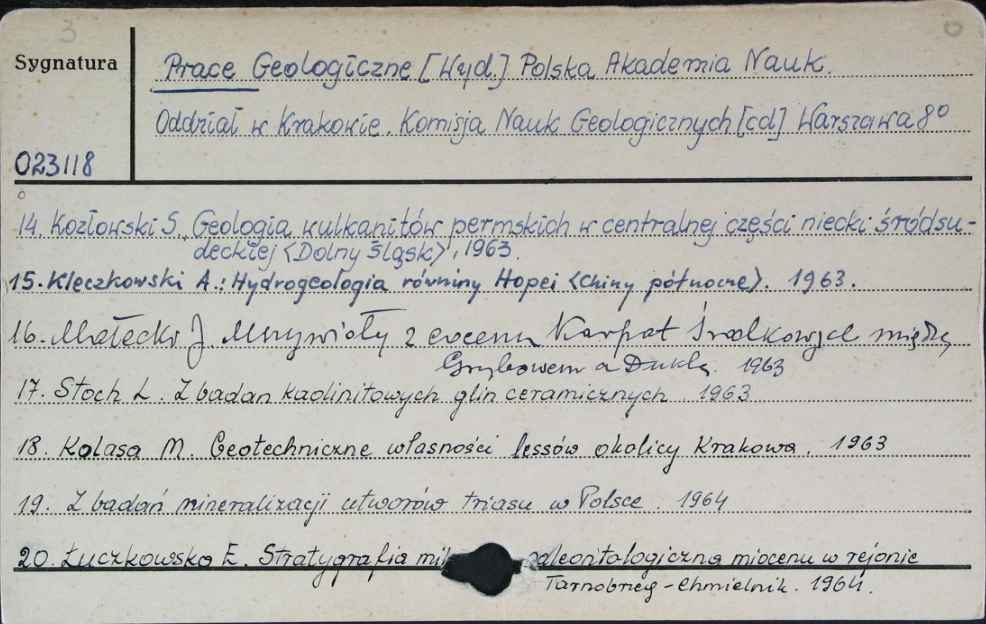 3
Sygnatura
Prace Geologiczne [Wyd.] Polska Akademia Nauk.
Oddział w Krakowie. Komisja Nauk Geologicznych [cd] Warszawa 8°
023118
14. Kozłowski S. Geologia wulkanitów permskich w centralnej części niecki śródsu-
deckiej <Dolny Śląsk>, 1963.
15. Kleczkowski A.: Hydrogeologia równiny Hopei <Chiny północne>. 1963.
16. Małecki J. Mszywioły z eocenu Karpat Środkowych między
Grybowem a Duklą. 1963
17. Stoch L. Z badan kaolinitowych glin ceramicznych. 1963
18. Kolasa M. Geotechniczne własności lessów okolicy Krakowa. 1963
19. Z badań mineralizacji utworów triasu w Polsce. 1964
20. Łuczkowska E. Stratygrafia mik paleontologiczna miocenu w rejonie
Tarnobrzeg - Chmielnik. 1964.